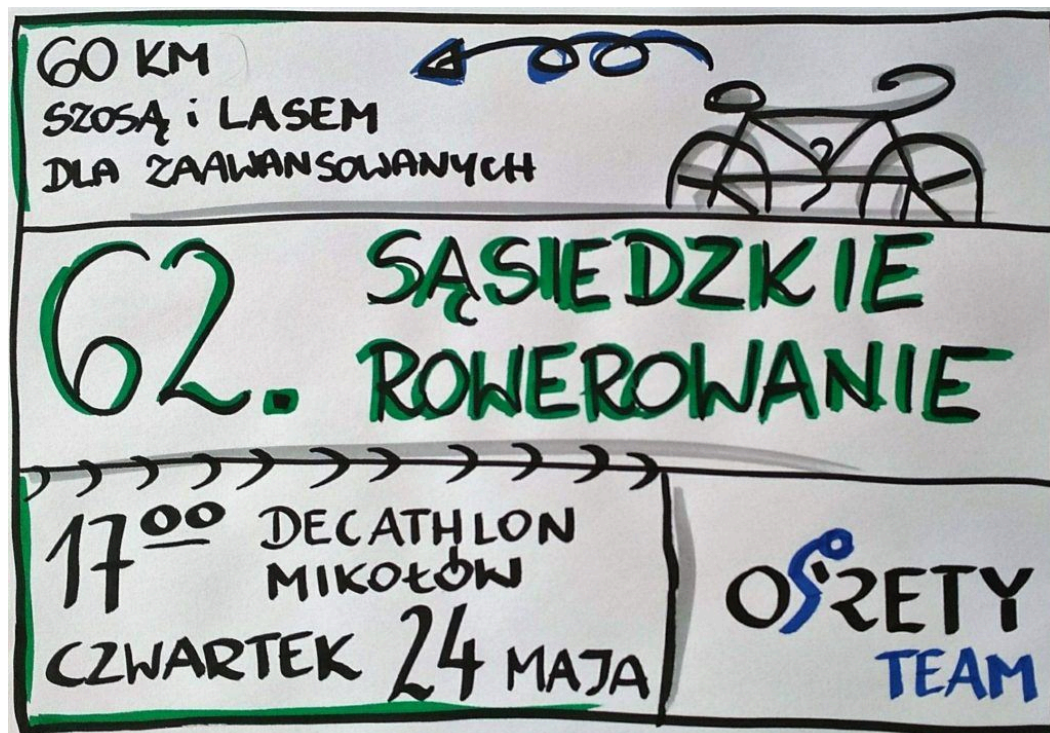 60 KM
SZOSĄ i LASEM
DLA ZAAWANSOWANYCH
62. SĄSIEDZKIE
ROWEROWANIE
17⁰⁰ DECATHLON
MIKOŁÓW
CZWARTEK 24 MAJA
TEAM